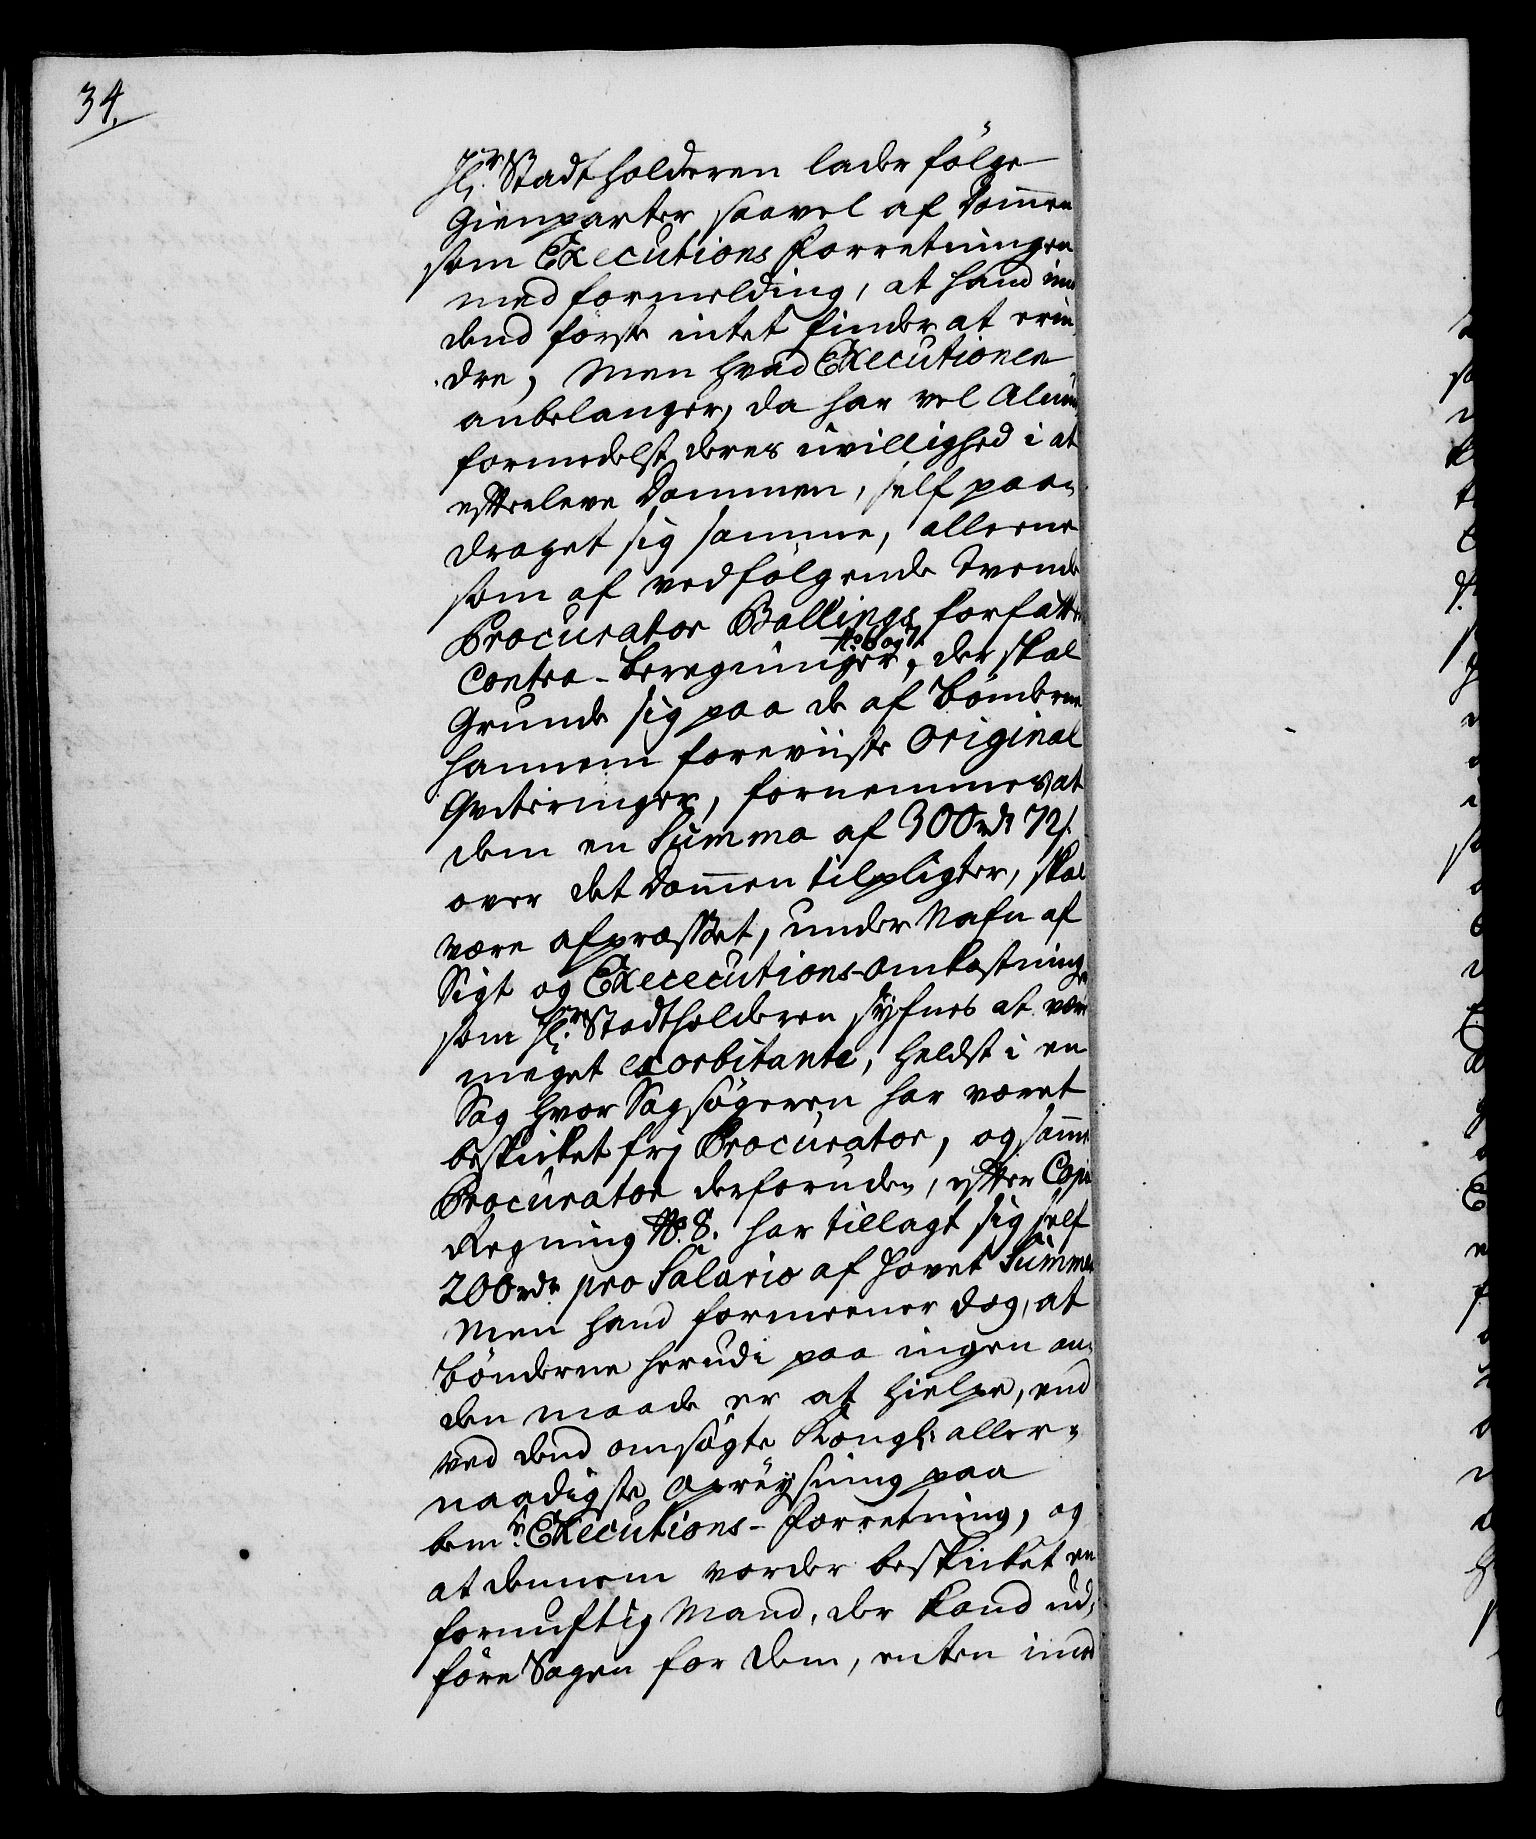 34.
Hr. Stadtholderen lader følge
Gienparter saavel af Dom̄en
som Executions Forretningen
med formelding, at hand imod
dend første intet finder at erin-
dre, Men hvad Executionen
anbelanger, da har vel Alm:
formedelst deres uvillighed i at
efterleve Dommen, self paa-
draget sig samme, alleene
som af vedfølgende tvende
Procurator Ballings forfatt:
Contra-beregninger, No. 6 og 7 der skal
Grunde sig paa de af Bønderne
hannem foreviiste Original
Qviteringer, fornemmes, at
dem en Summa af 300 rdr 72 s.
over det Dom̄en tilpligter, skal
være afpresset, under Nafn af
Sigt og Exececutions-omkostninger
som Hr. Stadtholderen syfnes at være
meget exorbitante, heldst i en
Sag hvor Sagsøgeren har været
beskicket frj Procurator, og sam̄e
Procurator desforuden, efter Copie
Regning No. 8. har tillagt sig self
200 rdr pro Salario af hovet Summen
Men hand formeener dog, at
bønderne herudi paa ingen an-
den maade er at hielpe, end
ved dend omsøgte Kongl: aller-
naadigste opreysning paa
bemte. Executions-Forretning, og
at dennem vorder beskicket en
fornuftig Mand, der kand ud-
føre Sagen for dem, enten imod